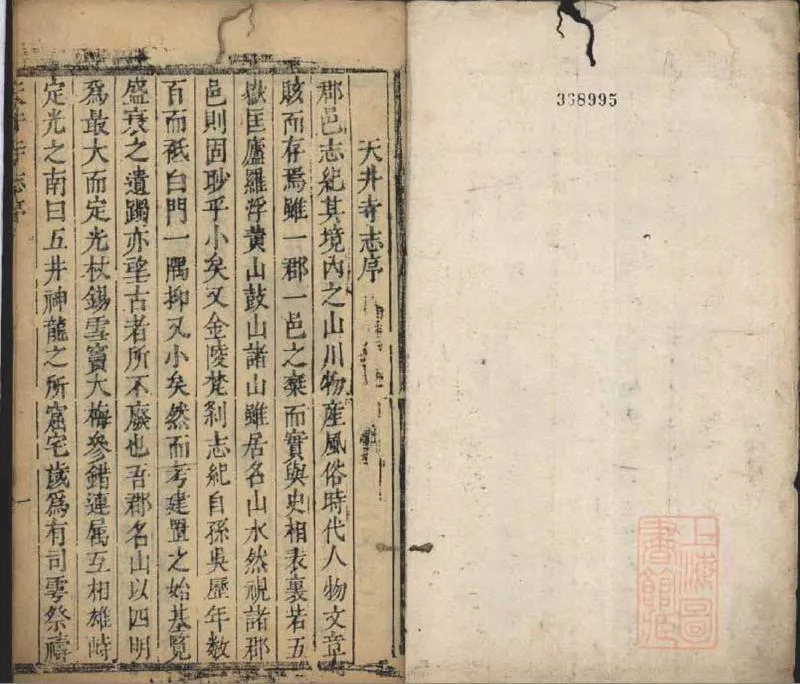 368995
上海圖
書館藏
天井寺志序
郡邑志紀其境內之山川物產風俗時代人物文章
賅而存焉雖一郡一邑之棄而實與史相表裏若五
嶽匡廬羅浮黄山鼓山諸山雖居名山水然視諸郡
邑則固眇乎小矣又金陵梵刹志紀自孫吳歷年數
百而祇白門一隅抑又小矣然而考建置之始基覽
盛衰之遺躅亦望古者所不廢也吾郡名山以四明
爲最大而定光杖錫雪竇大梅參錯連属互相雄峙
定光之南曰五井神龍之所窟宅歲爲有司雩祭禱
天井寺志序
一